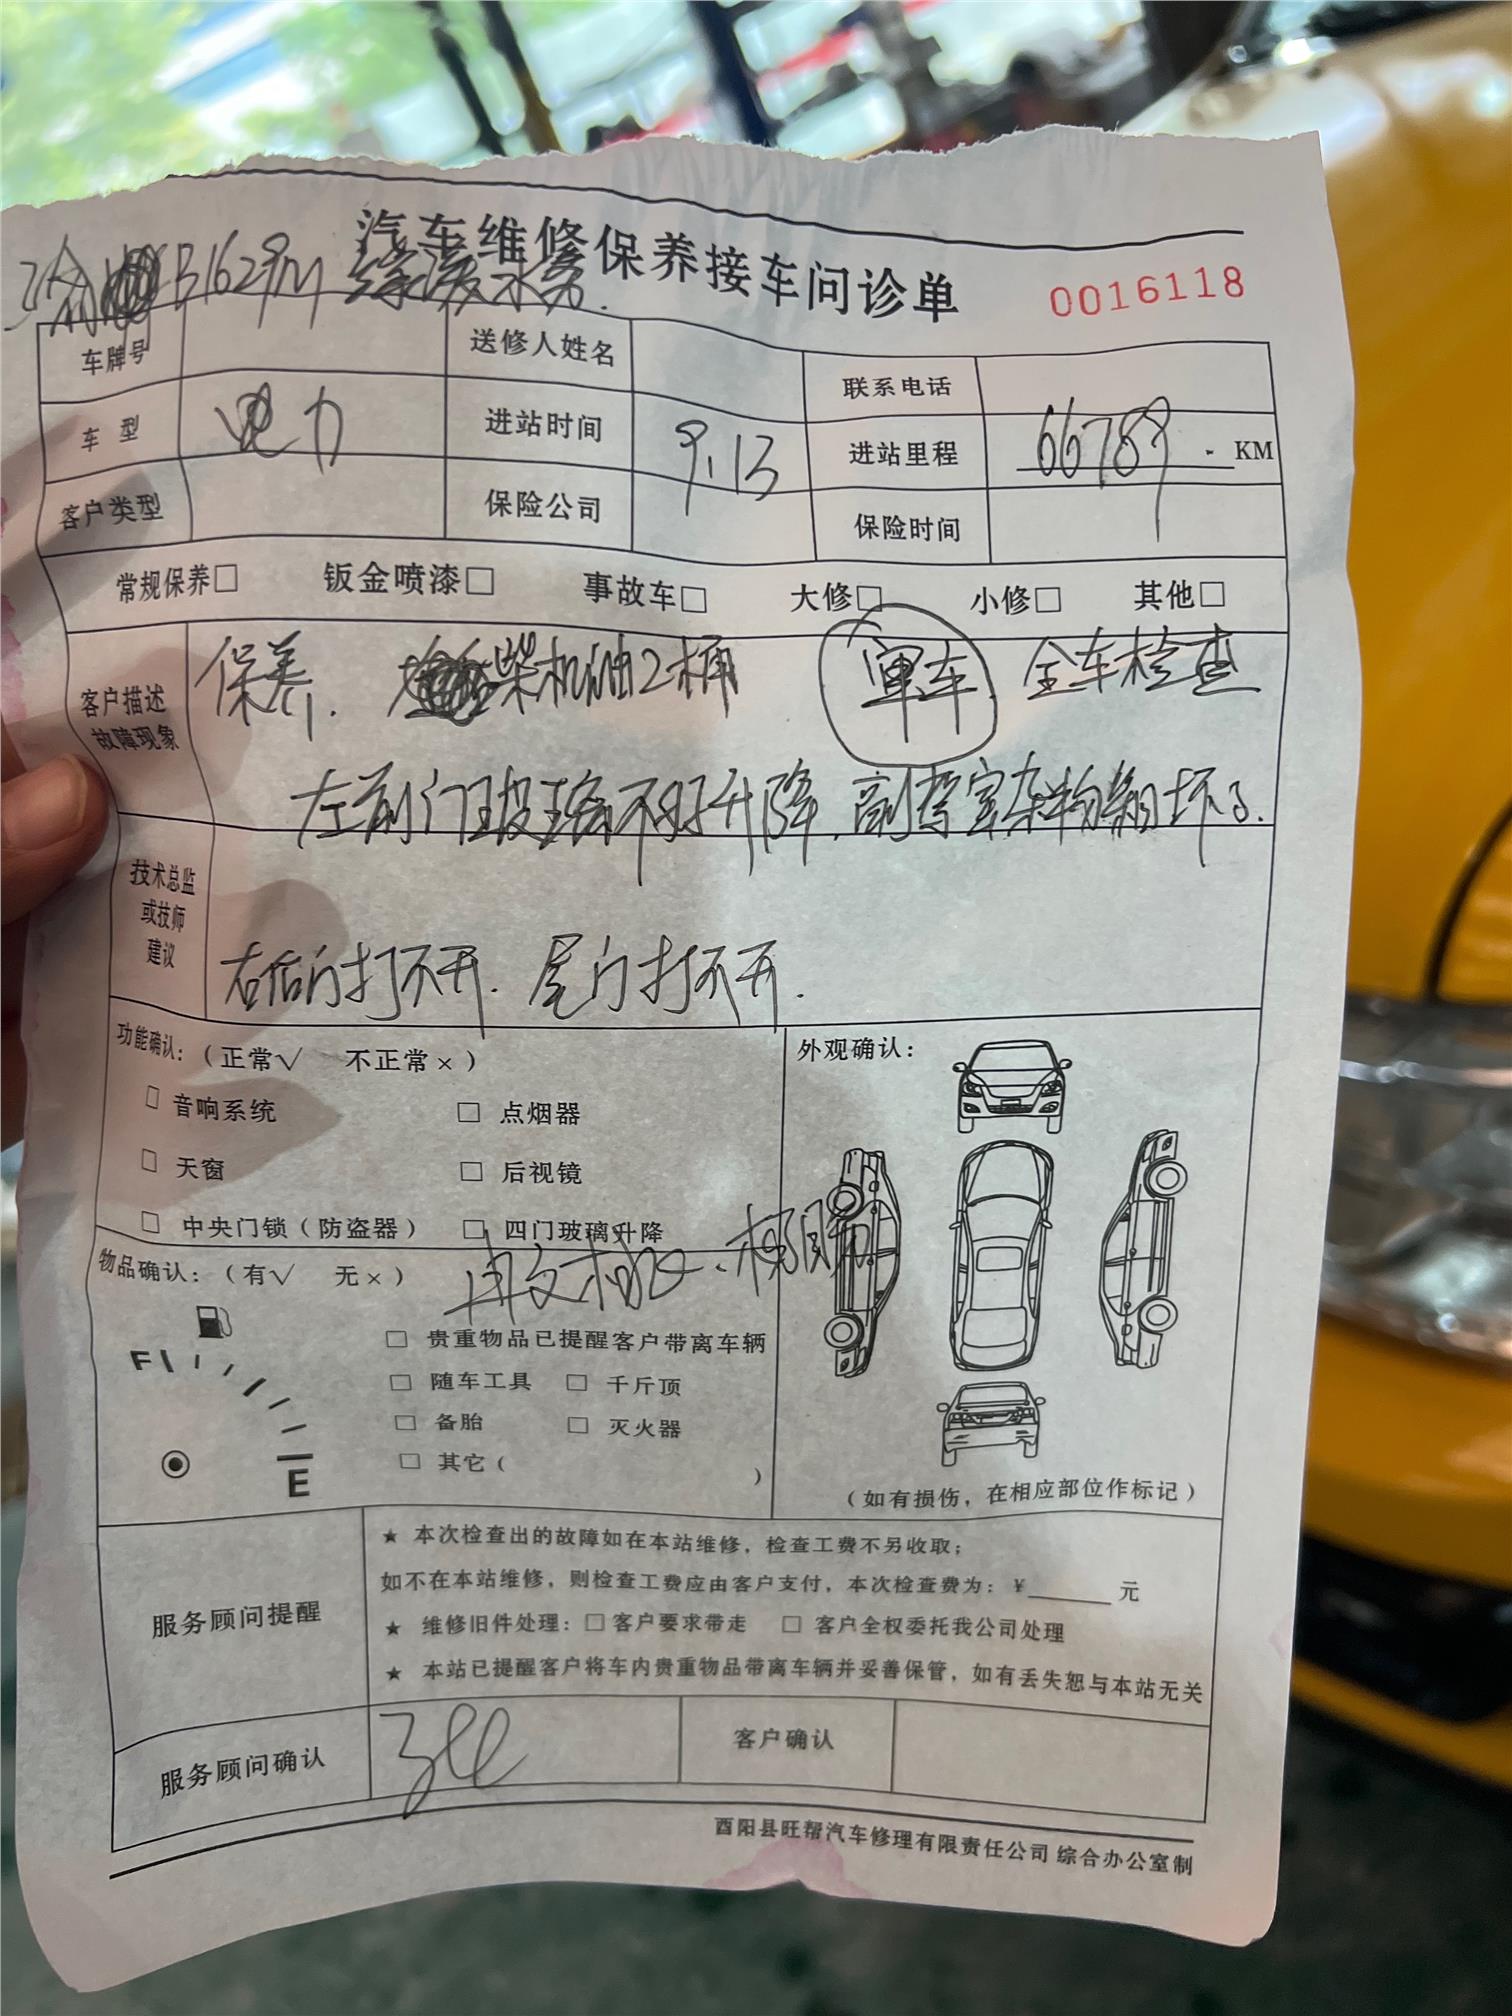 汽车维修保养接车问诊单
0016118
渝 B1629M
车牌号 送修人姓名 联系电话
车型 电力 进站时间 9.13 进站里程 66789 KM
客户类型 保险公司 保险时间
常规保养□ 钣金喷漆□ 事故车□ 大修□ 小修□ 其他□
客户描述
故障现象
保养. 柴机油2桶 单车 全车检查
左前门玻璃不好升降.副驾室杂物箱坏了.
技术总监
或技师
建议
右后门打不开. 尾门打不开.
功能确认:(正常√ 不正常×)
□ 音响系统 □ 点烟器
□ 天窗 □ 后视镜
□ 中央门锁(防盗器) □ 四门玻璃升降
外观确认:
物品确认:(有√ 无×)
□ 贵重物品已提醒客户带离车辆
□ 随车工具 □ 千斤顶
□ 备胎 □ 灭火器
□ 其它( )
F
E
(如有损伤,在相应部位作标记)
服务顾问提醒
★ 本次检查出的故障如在本站维修,检查工费不另收取;
如不在本站维修,则检查工费应由客户支付,本次检查费为:¥______元
★ 维修旧件处理:□客户要求带走 □ 客户全权委托我公司处理
★ 本站已提醒客户将车内贵重物品带离车辆并妥善保管,如有丢失恕与本站无关
服务顾问确认 客户确认
酉阳县旺帮汽车修理有限责任公司 综合办公室制